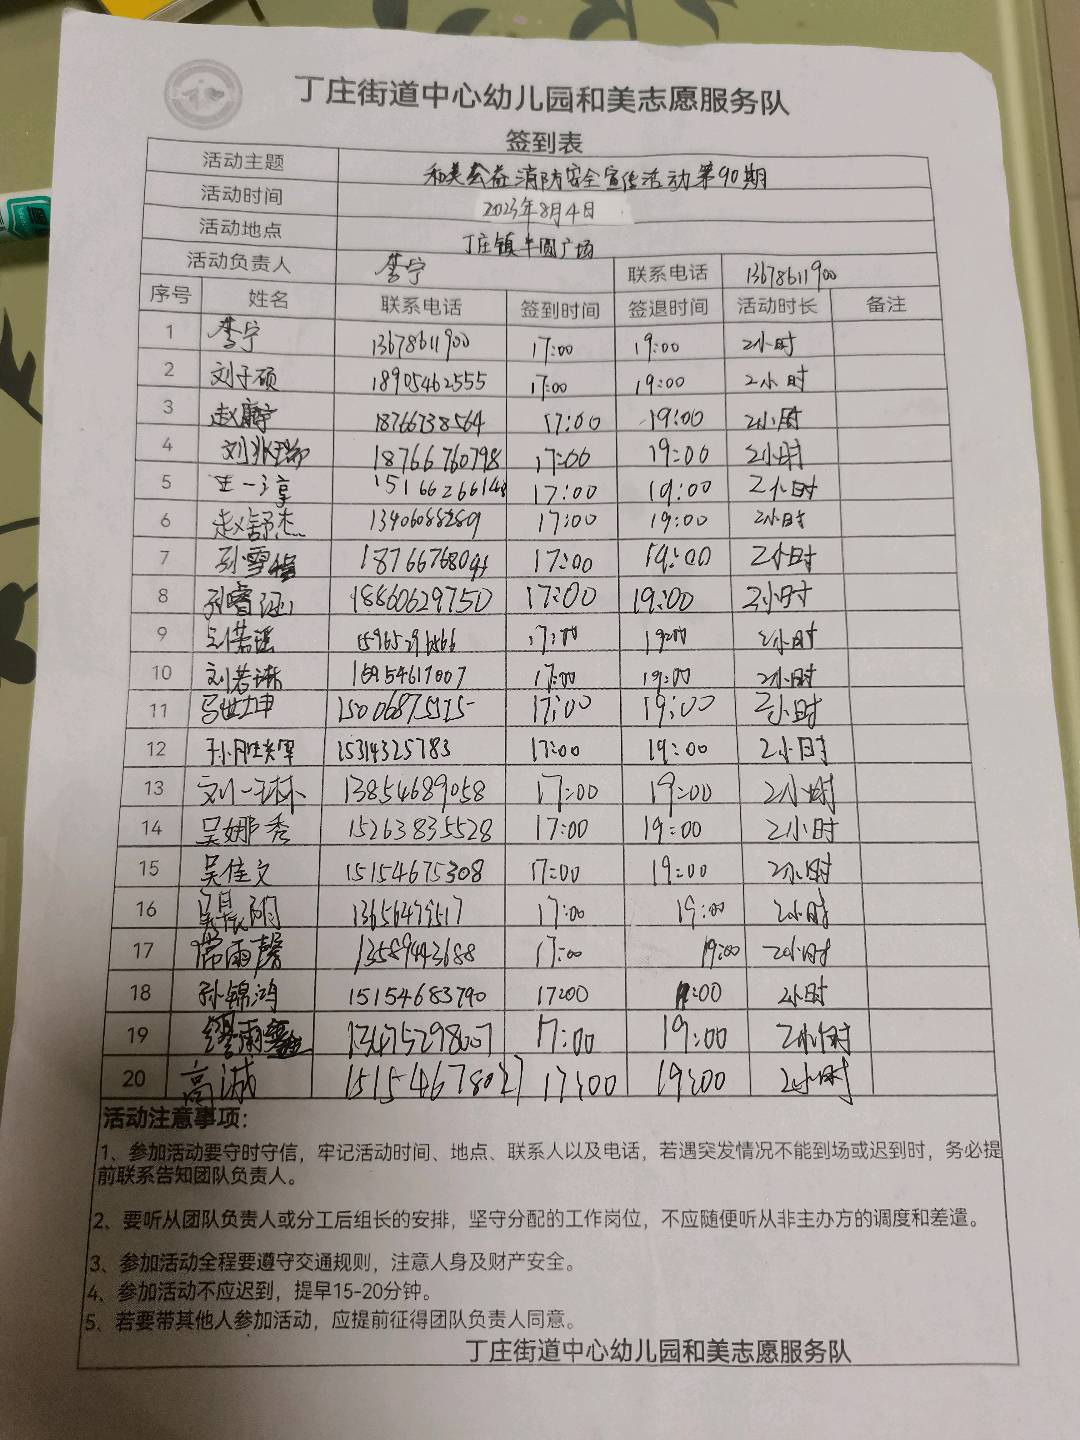 丁庄街道中心幼儿园和美志愿服务队
签到表
活动主题 和美公益消防安全宣传活动第90期
活动时间 2023年8月4日
活动地点 丁庄镇半圆广场
活动负责人 李宁 联系电话 13678611900
序号 姓名 联系电话 签到时间 签退时间 活动时长 备注
1 李宁 13678611900 17:00 19:00 2小时
2 刘子硕 18905462555 17:00 19:00 2小时
3 赵康宁 18766738564 17:00 19:00 2小时
4 18766760798 17:00 19:00 2小时
5 王一淳 15166266148 17:00 19:00 2小时
6 赵舒杰 13406088289 17:00 19:00 2小时
7 17:00 19:00 2小时
8 18860629750 17:00 19:00 2小时
9 17:00 19:00 2小时
10 刘若琳 17:00 19:00 2小时
11 17:00 19:00 2小时
12 15314325783 17:00 19:00 2小时
13 刘一林 13854689058 17:00 19:00 2小时
14 吴娜秀 15263835528 17:00 19:00 2小时
15 吴佳文 15154675308 17:00 19:00 2小时
16 17:00 19:00 2小时
17 常雨馨 13589443688 17:00 19:00 2小时
18 孙锦鸿 15154683790 1700 19:00 2小时
19 13475298007 17:00 19:00 2小时
20 高诚 15154678027 17:00 19:00 2小时
活动注意事项：
1、参加活动要守时守信，牢记活动时间、地点、联系人以及电话，若遇突发情况不能到场或迟到时，务必提
前联系告知团队负责人。
2、要听从团队负责人或分工后组长的安排，坚守分配的工作岗位，不应随便听从非主办方的调度和差遣。
3、参加活动全程要遵守交通规则，注意人身及财产安全。
4、参加活动不应迟到，提早15-20分钟。
5、若要带其他人参加活动，应提前征得团队负责人同意。
丁庄街道中心幼儿园和美志愿服务队